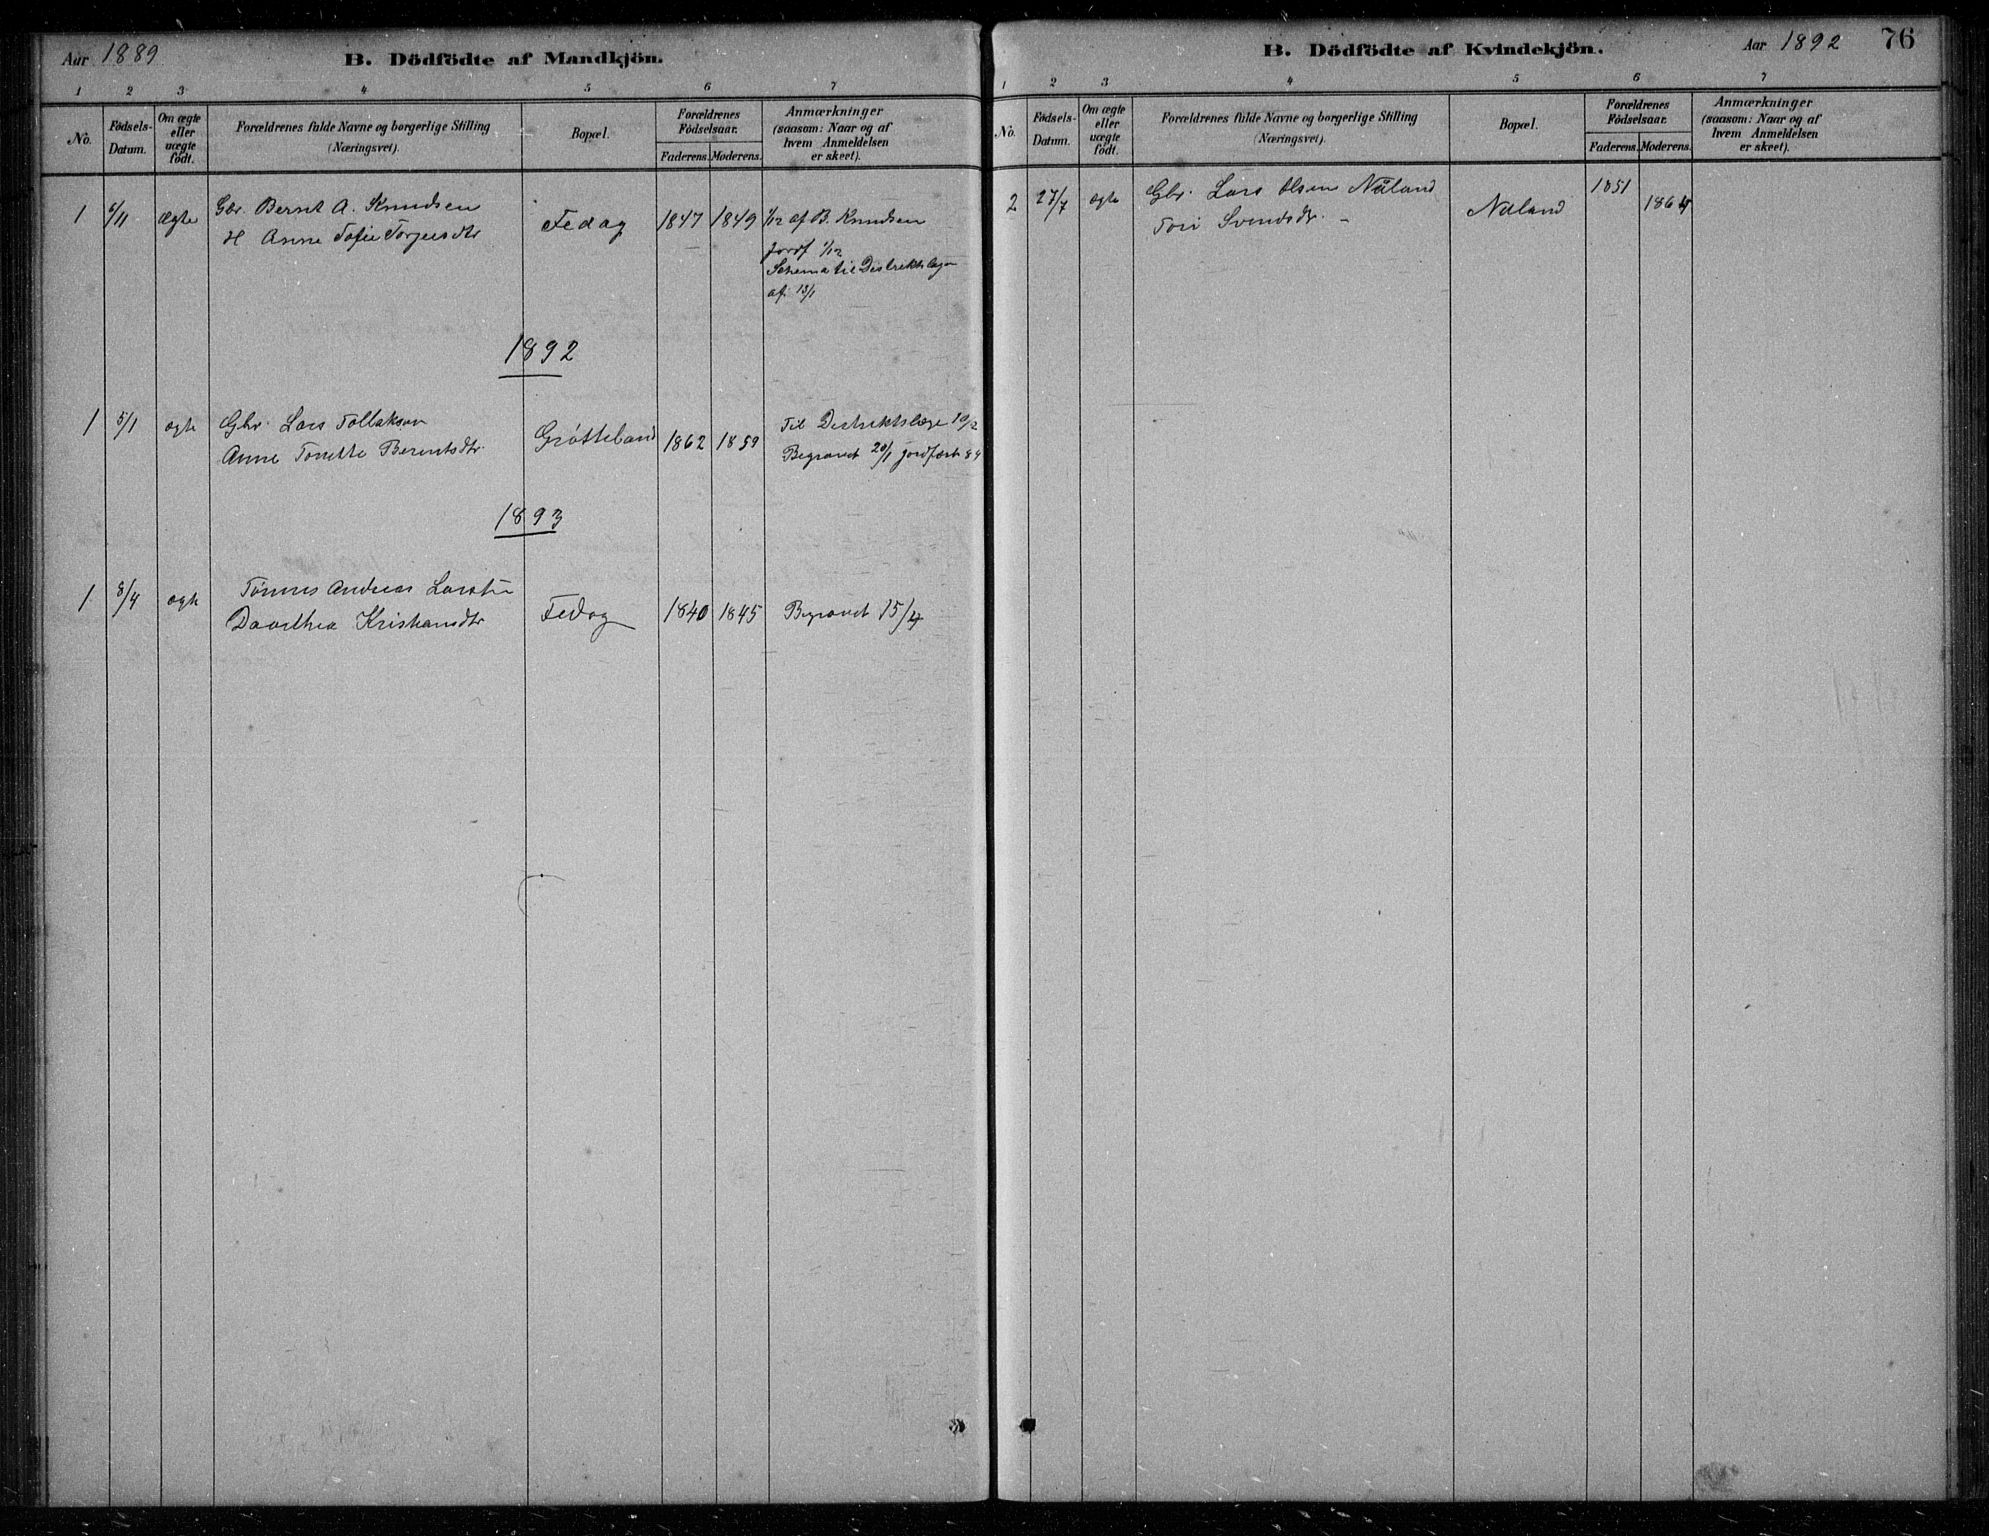 Aar 1889
B. Dödfödte af Mandkjön.
1 2 3 4 5 6 7
No.
Födsels-Datum.
Om ægte eller uægte födt.
Forældrenes fulde Navne og borgerlige Stilling (Næringsvei).
Bopæl.
Forældrenes Födselsaar.
Faderens. Moderens.
Anmærkninger (saasom: Naar og af hvem Anmeldelsen er skeet).
1 6/11 ægte Gbr. Bernt A. Knudsen Fedog 1847 1849 1/12 af B. Knudsen
H Anne Tofie Torjusdtr
Jordf 1/12
Schema til Distriktslæge
af 13/1
1892
1 5/1 ægte Gbr. Lars Tollaksen Grøtteland 1862 1859 Til Distriktslæge 10/2
Anne Tonette Berentsdtr. Begravet 20/1 jordfæst
1893
1 8/4 ægte Tønnes Andreas
Dorthea Kristiansdtr Fedog 1840 1845 Begravet 15/4
B. Dödfödte af Kvindekjön.
Aar 1892 76
1 2 3 4 5 6 7
No.
Födsels-Datum.
Om ægte eller uægte födt.
Forældrenes fulde Navne og borgerlige Stilling (Næringsvei).
Bopæl.
Forældrenes Födselsaar.
Faderens. Moderens.
Anmærkninger (saasom: Naar og af hvem Anmeldelsen er skeet).
2 27/7 ægte Gbr. Lars Olsen Nåland Nåland 1851 1864
Tori Svendsdr. –